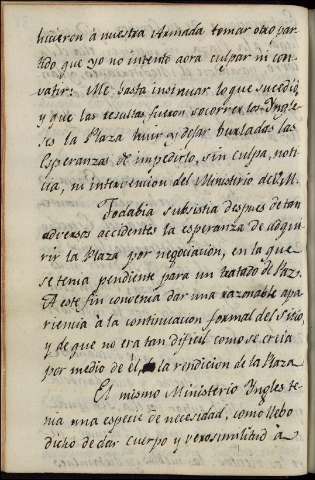 hicieron à nuestra Armada tomar otro par-
tido que yo no intento aora culpar ni con-
vatir: Me basta insinuar lo que sucedió,
y que las resultas fueron socorrer los Yngle-
ses la Plaza huir y dejar burladas las
Esperanzas de impedirlo, sin culpa, noti-
cia, ni intervencion del Ministerio de V.M.
Todabia subsistia despues de tan
adversos accidentes la esperanza de adqui-
rir la Plaza por negociacion, en la que
se tenia pendiente para un tratado de Paz.
A este fin convenia dar una razonable apa-
riencia à la continuacion formal del sitio,
y de que no era tan dificil como se creia
por medio de él, la rendicion de la Plaza
El mismo Ministerio Yngles te-
nia una especie de necesidad, como llebo
dicho de dar cuerpo y verosimilitud à